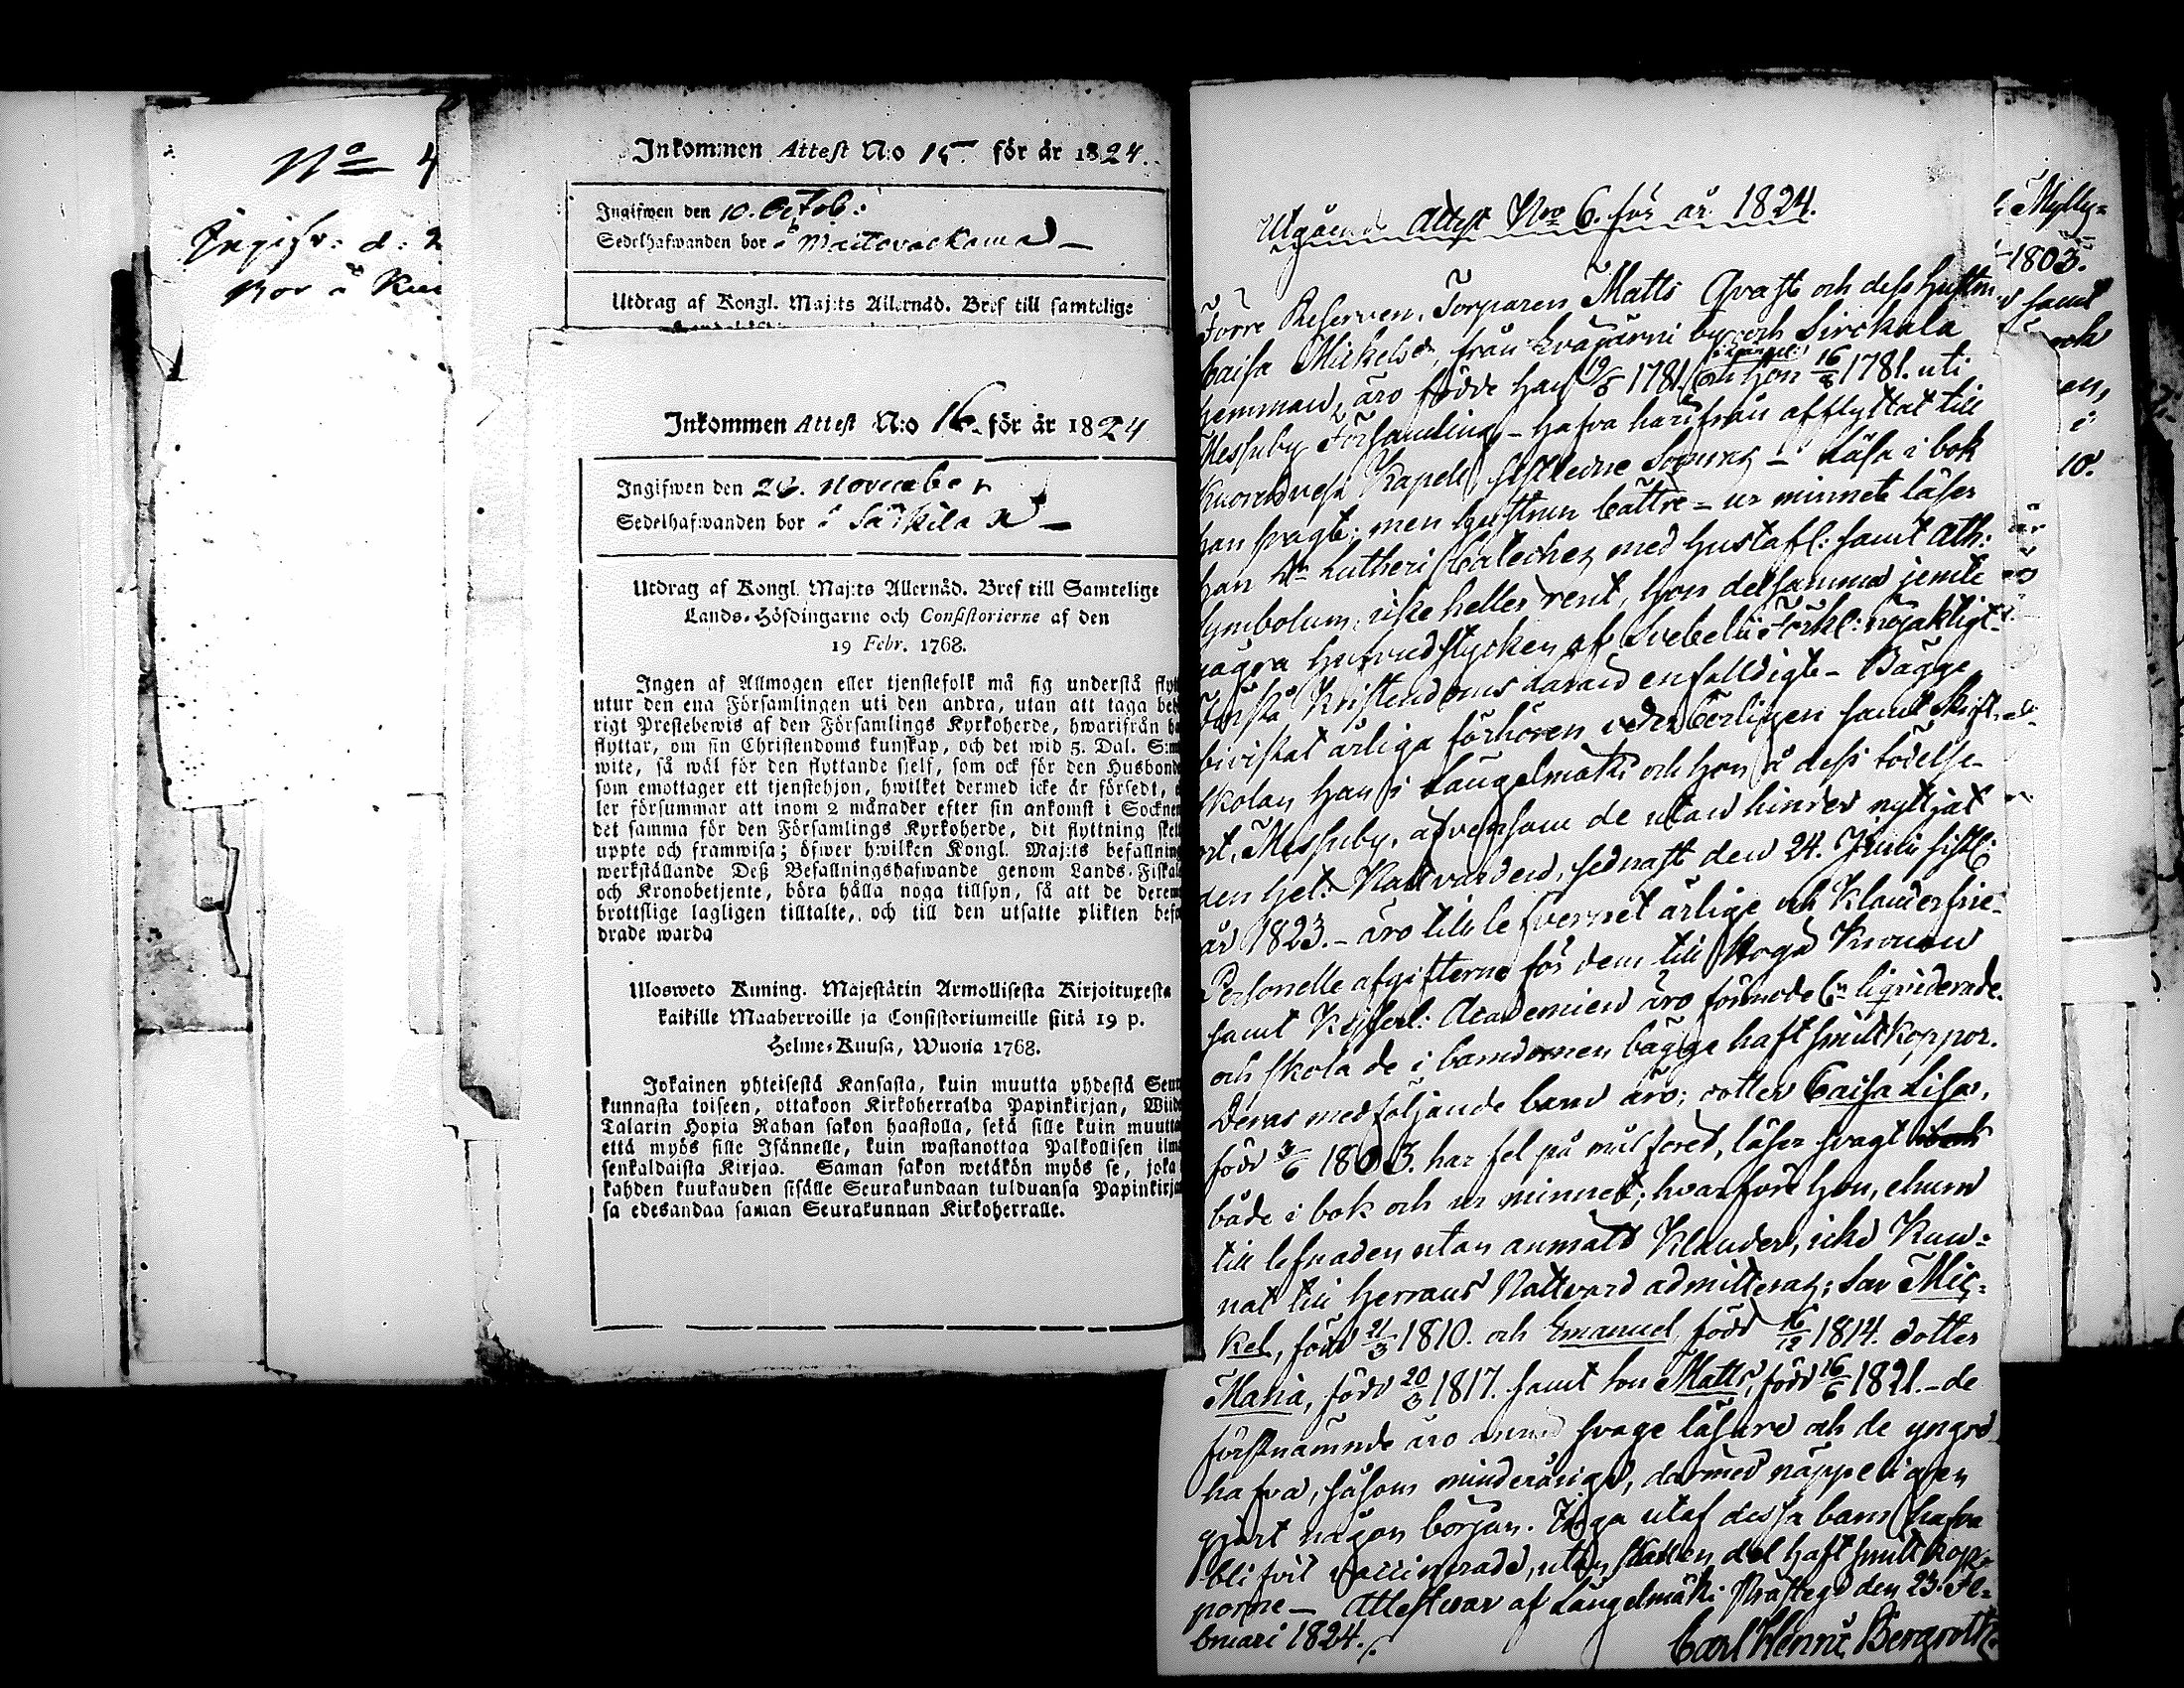 No 4
Ingifv: d:
Bor å
Inkommen Attest N:o 15 för år 1824.
Ingifwen den 10. Octob:
Sedelhafwanden bor å
Utdrag af Kongl. Maj:ts Allernåd. Bref till samtelige
Inkommen Attest N:o 16 för år 1824
Ingifwen den 26. November
Sedelhafwanden bor å Särkila
Utdrag af Kongl. Maj:ts Allernåd. Bref till Samtelige
Lands-Höfdingarne och Consistorierne af den
19 Febr. 1768.
Ingen af Allmogen eller tjenstefolk må sig understå
utur den ena Församlingen uti den andra, utan att taga
rigt Prestebewis af den Församlings Kyrkoherde, hwarifrån
flyttar, om sin Christendoms kunskap, och det wid 5. Dal. S:mt
wite, så wäl för den flyttande sjelf, som ock för den Husbonde
som emottager ett tjenstehjon, hwilket dermed icke är försedt,
ler försummar att inom 2 månader efter sin ankomst i Socknen
det samma för den Församlings Kyrkoherde, dit flyttning
uppte och framwisa; öfwer hwilken Kongl. Maj:ts befallning
werkställande Deß Befallningshafwande genom Lands-Fiskale
och Kronobetjente, böra hålla noga tillsyn, så att de
brottslige lagligen tilltalte, och till den utsatte plikten
drade warda
Ulosweto Kuning. Majestätin Armollisesta Kirjoituxesta
kaikille Maaherroille ja Consistoriumeille siitä 19 p.
Helme-Kuusa, Wuona 1768.
Jokainen yhteisestä Kansasta, kuin muutta yhdestä
kunnasta toiseen, ottakoon Kirkoherralda Papinkirjan,
Talarin Hopia Rahan sakon haastolla, sekä sille kuin muutta
että myös sille Isännelle, kuin wastanottaa Palkollisen
senkaldaista Kirjaa. Saman sakon wetäkön myös se, joka
kahden kuukauden sisälle Seurakundaan tulduansa Papinkirja
sa edesandaa saman Seurakunnan Kirkoherralle.
Utgående Attest Nro 6. för år 1824.
Förre Reserven, Torparen Matts Qvast och dess Hustru
Caisa Michelsdr, från byn och Sirckala
hemman, äro födde han 1781. och hon 16/8 1781. uti
Messuby Församling – hafva härifrån afflyttat till
Kuorevesi Kapell sistledne Sommar – Läsa i bok
han svagt; men hustrun bättre – ur minnet läser
han Dr Lutheri Cateches med Hustafl: samt Ath:
Symbolum, icke heller rent, hon detsamma jemte
några hufvudstycken af Svebelii Förkl: nöjaktigt.
Förstå Kristendoms läran enfalldigt – Bägge
bivistat årliga förhören vederbörligen samt Skrift-
skolan han i Längelmäki och hon å dess födelse-
ort, Messuby, äfvensom de utan hinder nyttjat
den Hel: Nattvarden, sednast den 24. Junii sistl:
år 1823. – äro till lefvernet ärlige och Klanderfrie.
Personelle afgifterne för dem till Höga Kronan
samt Kejserl: Academien äro förmodel:n liqviderade.
och skola de i barndomen bägge haft smittkoppor.
Deras medföljande barn äro; dotter Caisa Lisa,
född 3/6 1803. har fel på målföret, läser svagt
både i bok och ur minnet; hvarföre hon, ehuru
till lefnaden utan anmält Klander, icke Kun-
nat till Herrans Nattvard admitteras; Son Mic-
kel, född 21/3 1810. och Emanuel, född 16/12 1814. dotter
Maria, född 20/3 1817. samt son Matts, född 16/6 1821. – de
förstnämnde äro ännu svage läsare och de yngre
hafva, såsom minderårige, därmed näppeligen
gjort någon början. Inga utaf dessa barn hafva
blifvit vaccinerade, utan haft smittkop-
porne – Attesterar af Längelmäki Prästegd den 23. Fe-
bruari 1824.
Carl Henric Bergroth
Mylly-
1803.
samt
och
en,
i
10.
är